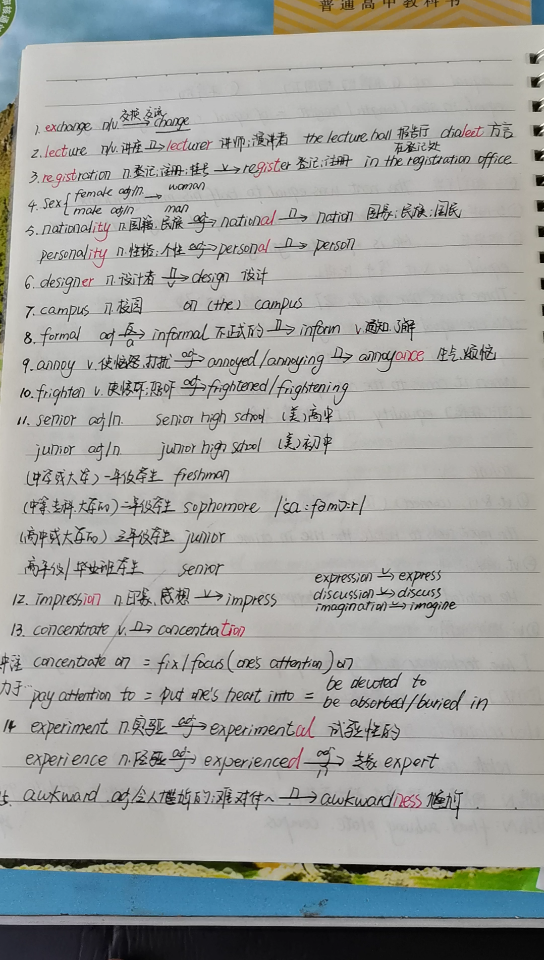 普通高中教科书
1. exchange n/v. 交换,交流 → change
2. lecture n/v. 讲座 n→ lecturer 讲师;演讲者 the lecture hall 报告厅 dialect 方言
3. registration n.登记;注册;挂号 v→ register 登记;注册 in the registration office 在登记处
4. sex { female adj/n → woman
male adj/n → man
5. nationality n.国籍;民族 adj→ national n→ nation 国家;民族;国民
personality n.性格;个性 adj→ personal n→ person
6. designer n.设计者 n/v→ design 设计
7. campus n.校园 on (the) campus
8. formal adj 反/a→ informal 不正式的 n→ inform v.通知,了解
9. annoy v.使恼怒,打扰 adj→ annoyed/annoying n→ annoyance 生气,烦恼
10. frighten v.使惊吓;恐吓 adj→ frightened/frightening
11. senior adj/n. senior high school (美)高中
junior adj/n junior high school (美)初中
(中学或大学)一年级学生 freshman
(中等,专科,大学的)二年级学生 sophomore /ˈsɑ:fəmɔ:r/
(高中或大学的)三年级学生 junior
高年级/毕业班学生 senior
12. impression n.印象,感想 v→ impress
expression v→ express
discussion v→ discuss
imagination v→ imagine
13. concentrate v. n→ concentration
concentrate on = fix/focus (one's attention) on
力于 pay attention to = put one's heart into = be devoted to
be absorbed/buried in
14. experiment n.实验 adj→ experimental 试验性的
experience n.经验 adj→ experienced adj/n→ 专家 expert
awkward adj令人尴尬的;难对付~ n→ awkwardness 尴尬